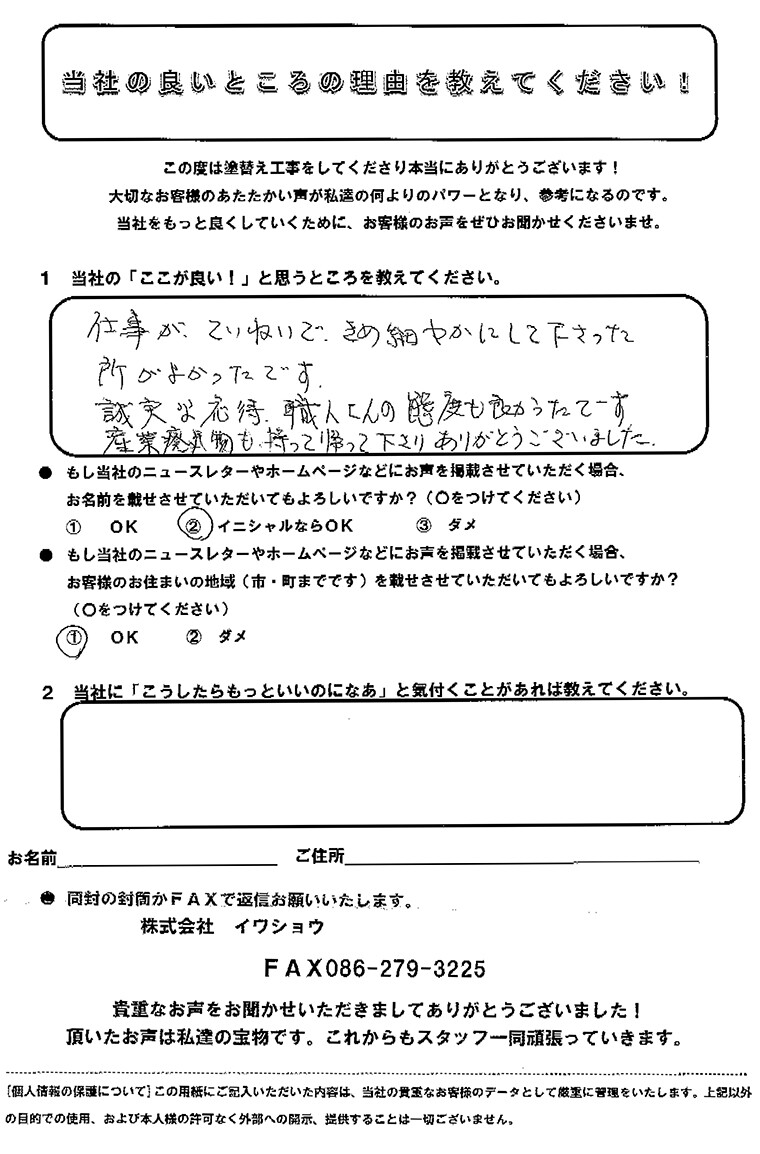 当社の良いところの理由を教えてください！
この度は塗替え工事をしてくださり本当にありがとうございます！
大切なお客様のあたたかい声が私達の何よりのパワーとなり、参考になるのです。
当社をもっと良くしていくために、お客様のお声をぜひお聞かせくださいませ。
1　当社の「ここが良い！」と思うところを教えてください。
仕事が、ていねいで、きめ細やかにして下さった
所がよかったです。
誠実な応待、職人さんの態度も良かったでーす
産業廃棄物も、持って帰って下さりありがとうございました。
● もし当社のニュースレターやホームページなどにお声を掲載させていただく場合、
お名前を載せさせていただいてもよろしいですか？（〇をつけてください）
①　OK　②イニシャルならOK　③　ダメ
● もし当社のニュースレターやホームページなどにお声を掲載させていただく場合、
お客様のお住まいの地域（市・町までです）を載せさせていただいてもよろしいですか？
（〇をつけてください）
①　OK　②　ダメ
2　当社に「こうしたらもっといいのになあ」と気付くことがあれば教えてください。
お名前　ご住所
● 同封の封筒かＦＡＸで返信お願いいたします。
株式会社　イワショウ
ＦＡＸ086-279-3225
貴重なお声をお聞かせいただきましてありがとうございました！
頂いたお声は私達の宝物です。これからもスタッフ一同頑張っていきます。
［個人情報の保護について］この用紙にご記入いただいた内容は、当社の貴重なお客様のデータとして厳重に管理をいたします。上記以外
の目的での使用、および本人様の許可なく外部への開示、提供することは一切ございません。